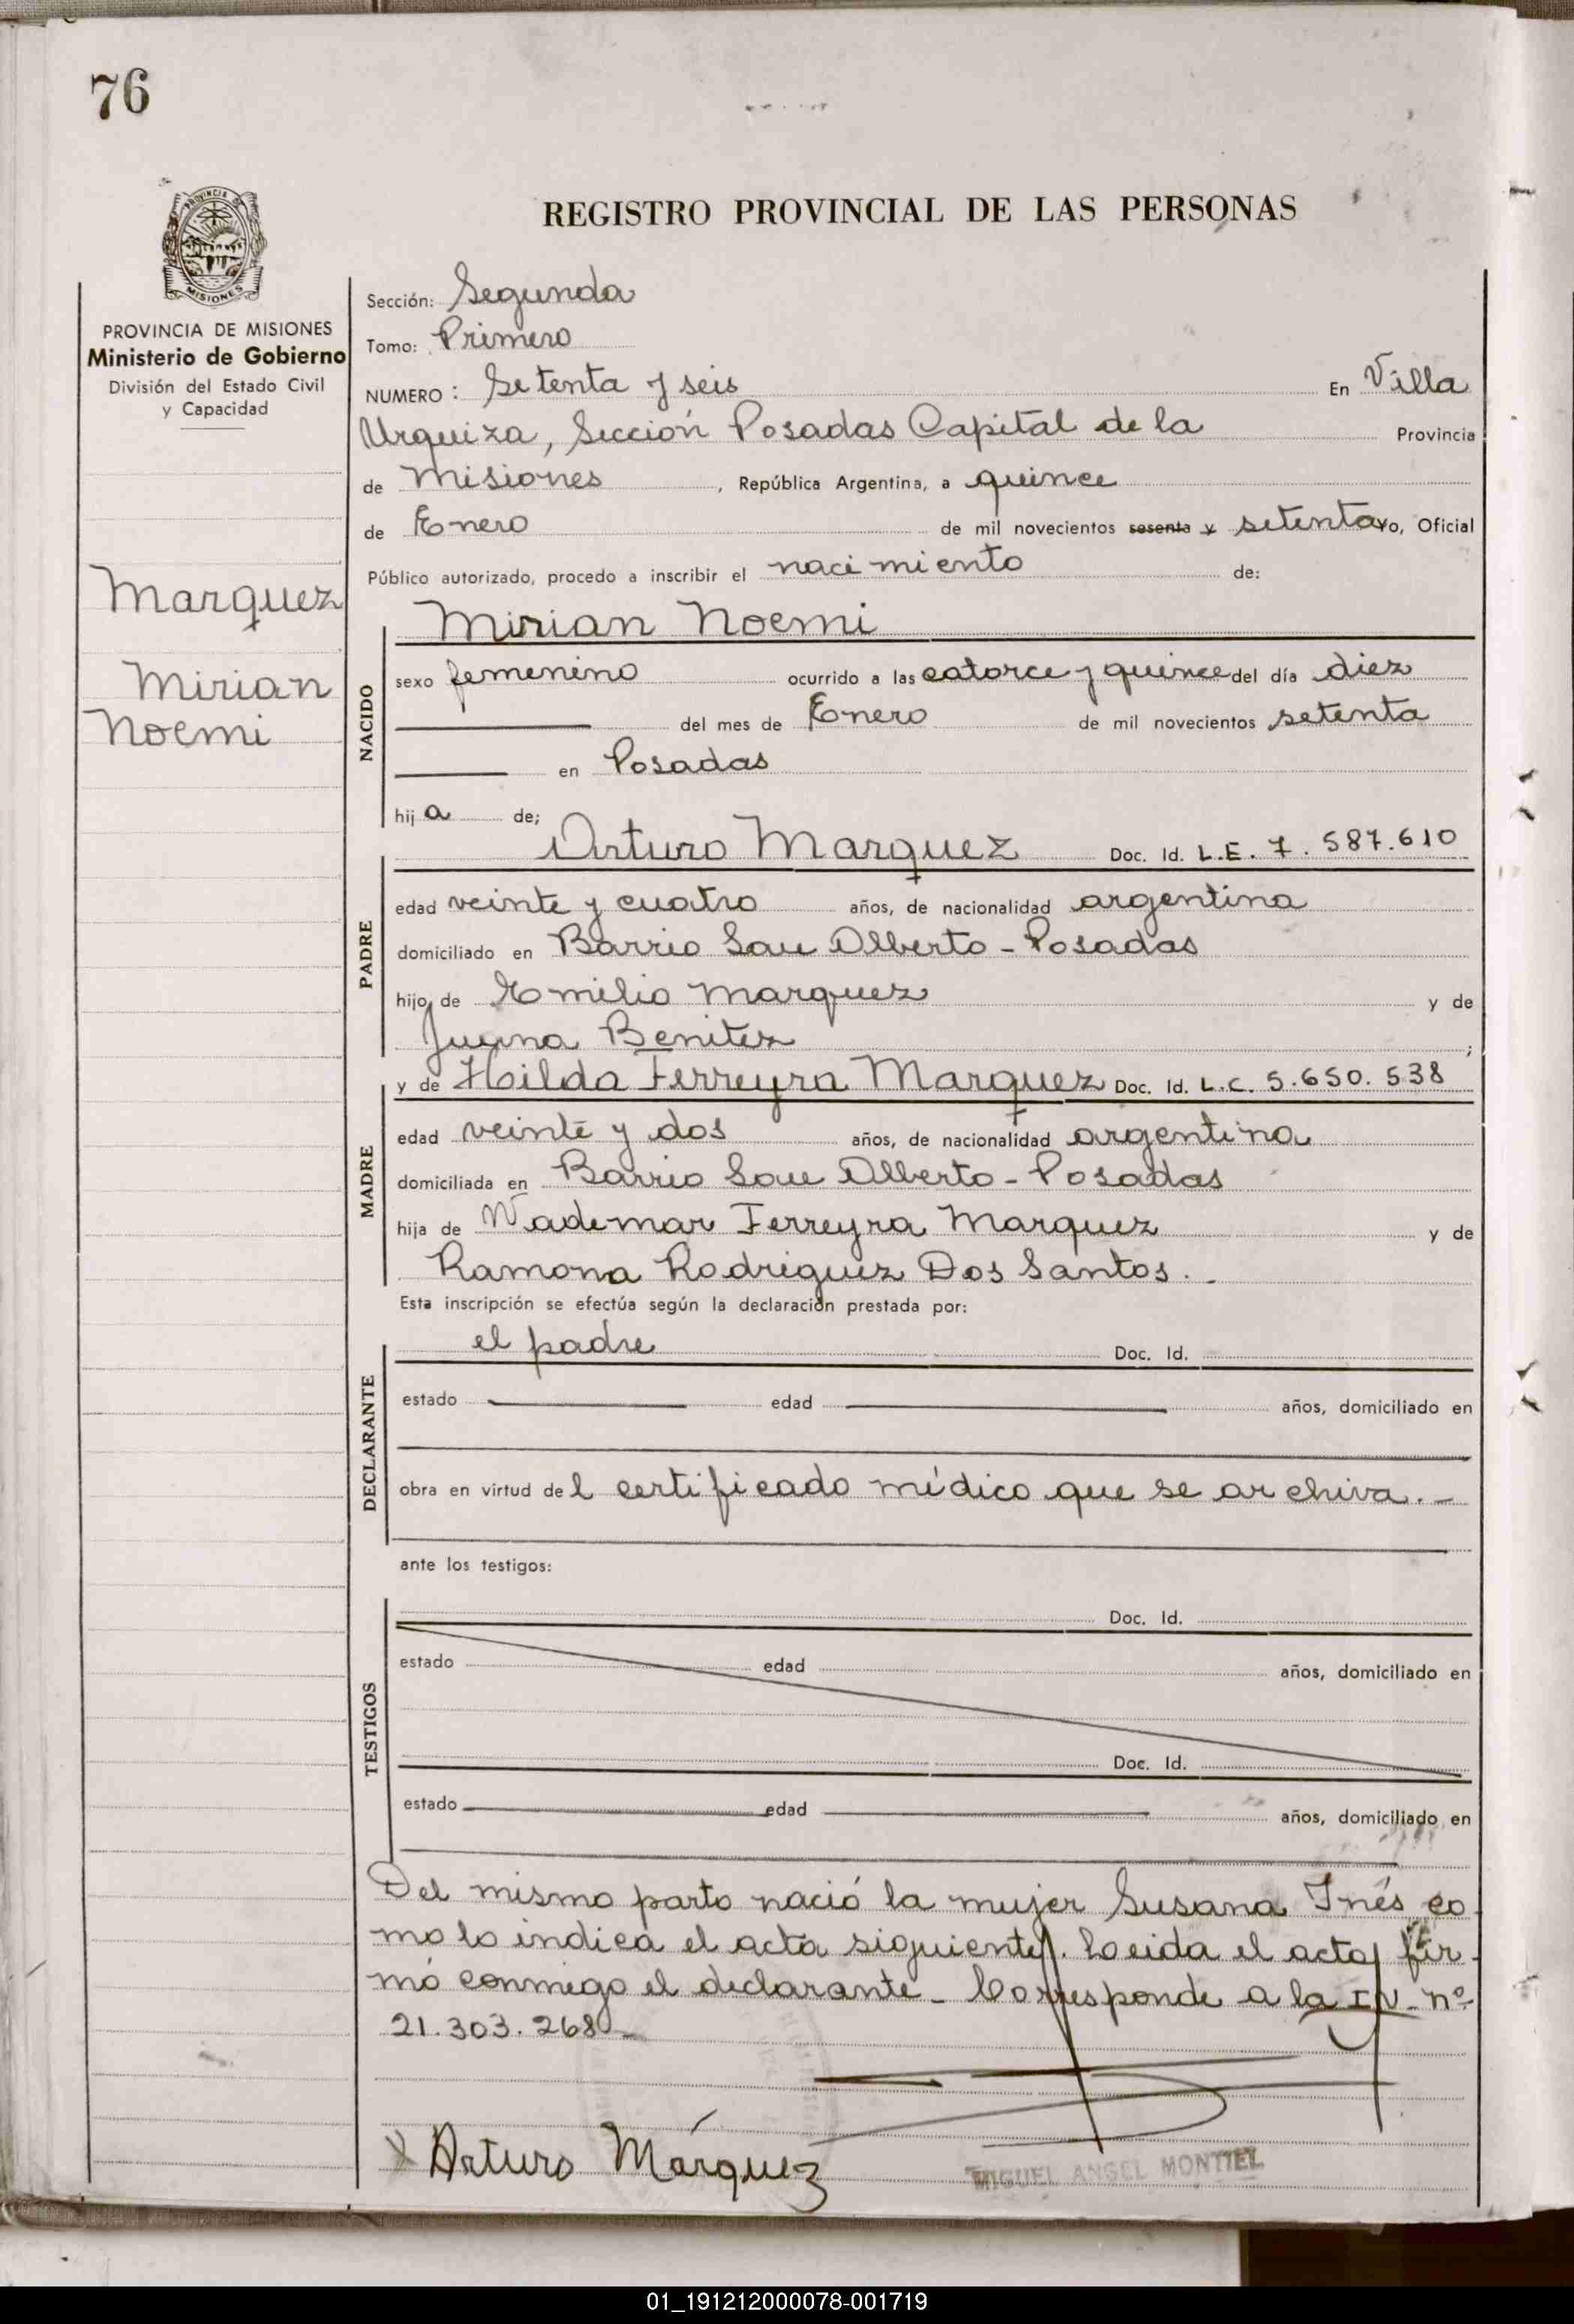 76
PROVINCIA DE
MISIONES
REGISTRO PROVINCIAL DE LAS PERSONAS
PROVINCIA DE MISIONES
Ministerio de Gobierno
División del Estado Civil
y Capacidad
Marquez
Mirian
Noemi
Sección: Segunda
Tomo: Primero
NUMERO: Setenta y seis En Villa
Urquiza, Sección Posadas Capital de la Provincia
de Misiones, República Argentina, a quince
de Enero de mil novecientos sesenta y setenta yo, Oficial
Público autorizado, procedo a inscribir el nacimiento de:
NACIDO
Mirian Noemi
sexo femenino ocurrido a las catorce y quince del día diez
del mes de Enero de mil novecientos setenta
en Posadas
hija de;
PADRE
Arturo Marquez Doc. Id. L.E. 7.587.610
edad veinte y cuatro años, de nacionalidad argentina
domiciliado en Barrio San Alberto - Posadas
hijo de Emilio Marquez y de
Juana Benitez;
MADRE
y de Hilda Ferreyra Marquez Doc. Id. L.C. 5.650.538
edad veinte y dos años, de nacionalidad argentina
domiciliada en Barrio San Alberto - Posadas
hija de Wademar Ferreyra Marquez y de
Ramona Rodriguez Dos Santos.-
Esta inscripción se efectúa según la declaración prestada por:
DECLARANTE
el padre Doc. Id.
estado edad años, domiciliado en
obra en virtud del certificado médico que se archiva.-
ante los testigos:
TESTIGOS
Doc. Id.
estado edad años, domiciliado en
Doc. Id.
estado edad años, domiciliado en
Del mismo parto nació la mujer Susana Inés co
mo lo indica el acta siguiente. Leida el acta, fir-
mó conmigo el declarante - Corresponde a la I.N. nº
21.303.268-
Arturo Márquez
MIGUEL ANGEL MONTIEL
01_191212000078-001719